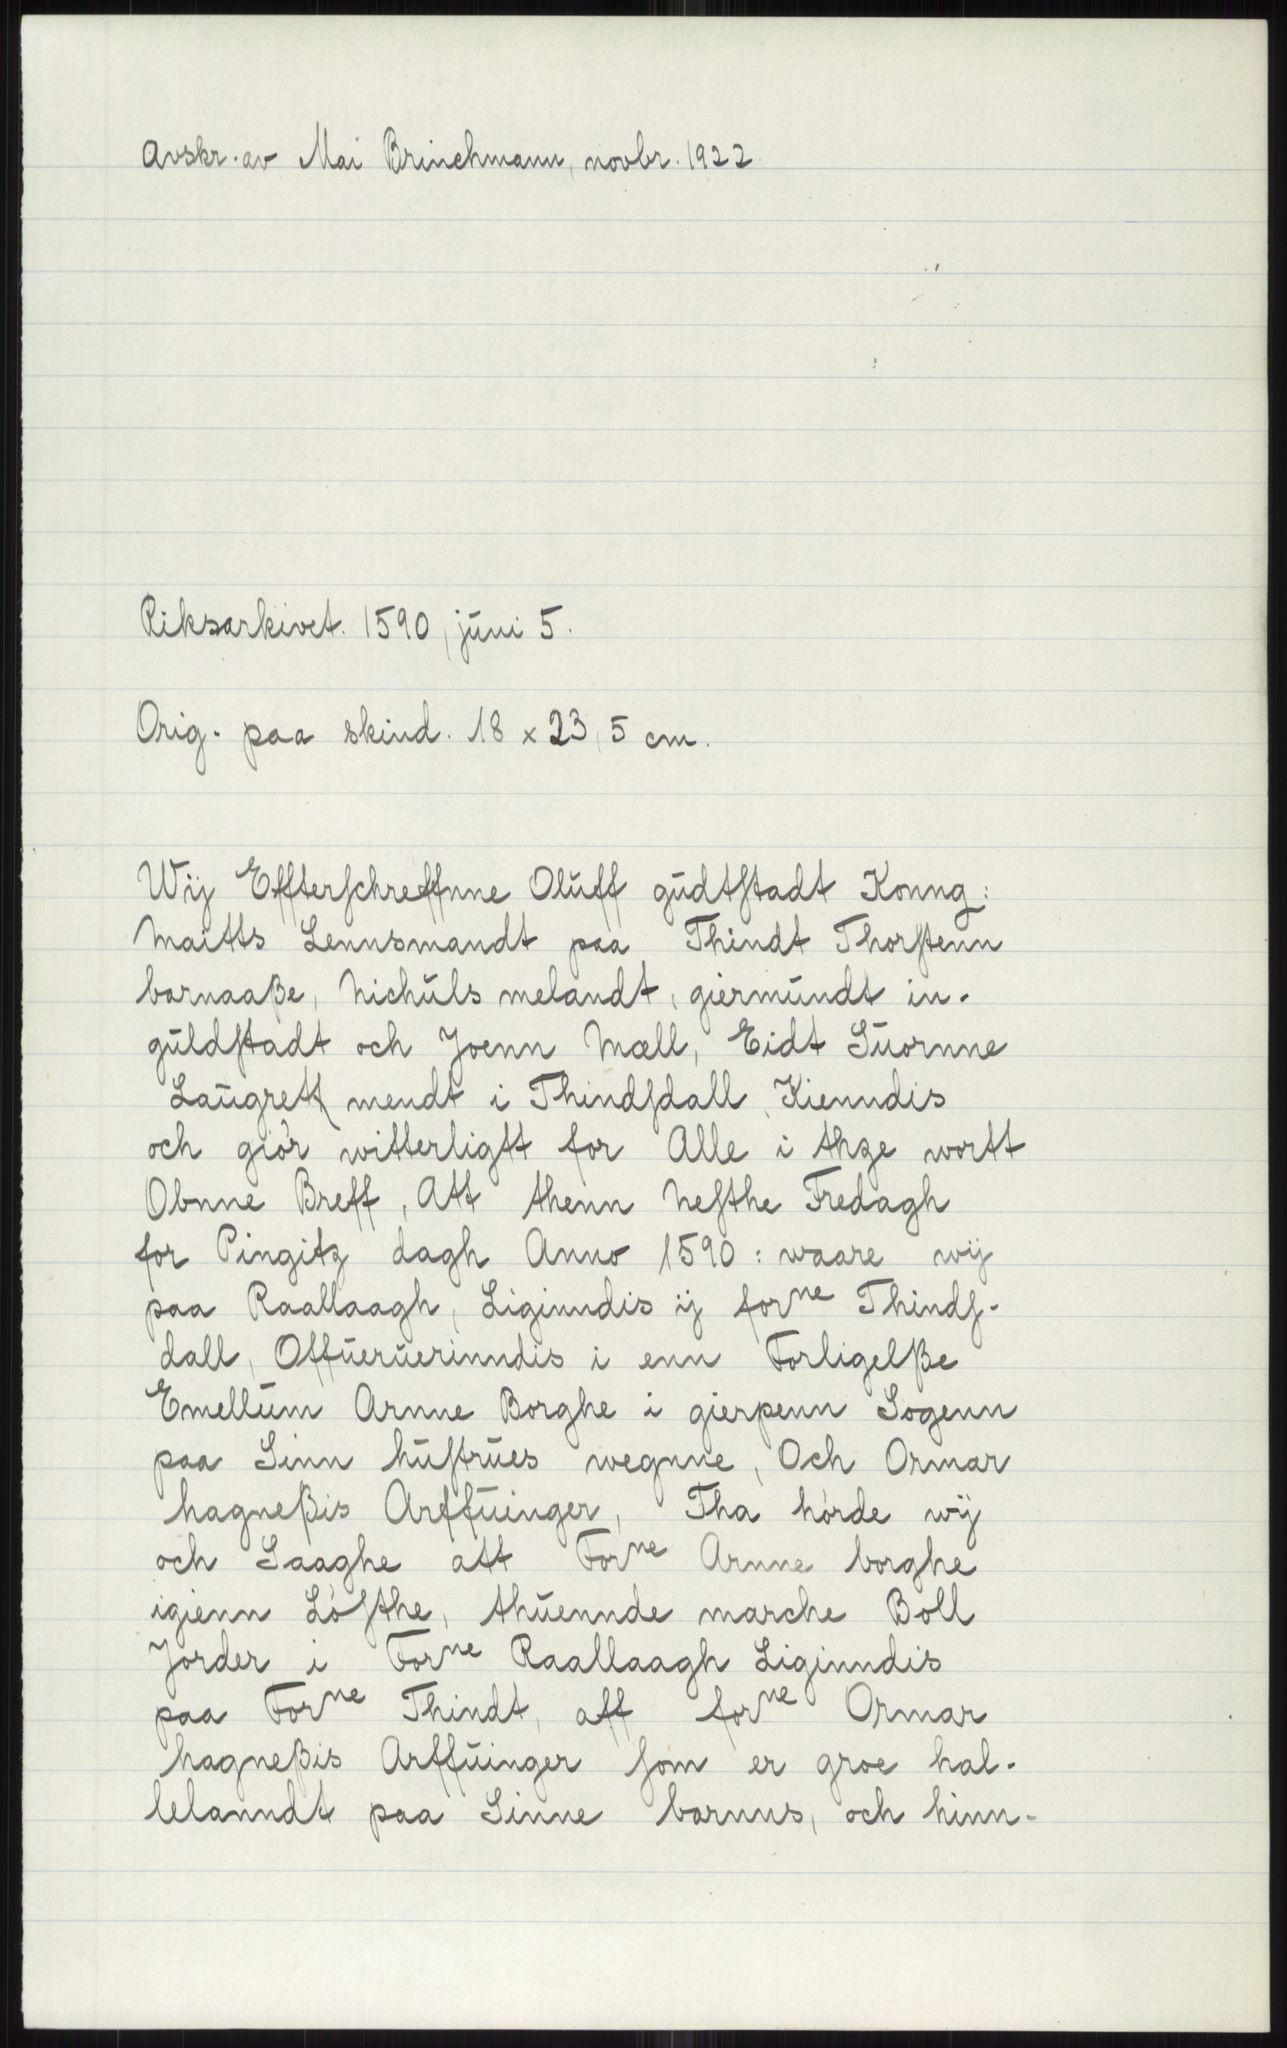 Avskr. av Mai Brinchmann, novbr. 1922.
Riksarkivet. 1590, juni 5.
Orig. paa skind. 18 x 23,5 cm.
Wij Effterſchreffnne Oluff gudtſtadt Konng:
Maitts Lennsmandt paa Thindt Thorſtenn
bornaaße, Nichuls melandt, giermundt in-
guldſtadt och Joenn Mæll, Eidt Suornne
Laugrett mendt i Thindſdall, Kienndis
och giör witterligtt for Alle i thze wortt
Obnne Breff, Att thenn Neſthe Fredagh
for Pingitz dagh Anno 1590: waare wij
paa Raallaagh, Liginndis ij forⁿᵉ Thindſ-
dall, Offueruerinndis i enn Forligelße
Emellum Arnne Borghe i gierpenn Sogenn
paa Sinn huſtrues wegnne, Och Ormar
hagneßis Arffuinger, Tha hörde wij
och Saaghe att Forⁿᵉ Arnne borghe
igienn Löſthe, thuennde marche Boll
Jorder i Forⁿᵉ Raallaagh Liginndis
paa Forⁿᵉ Thindt, aff forⁿᵉ Ormar
hagneßis Arffuinger ſom er groe hal-
lelanndt paa Sinne bornns, och hinn-